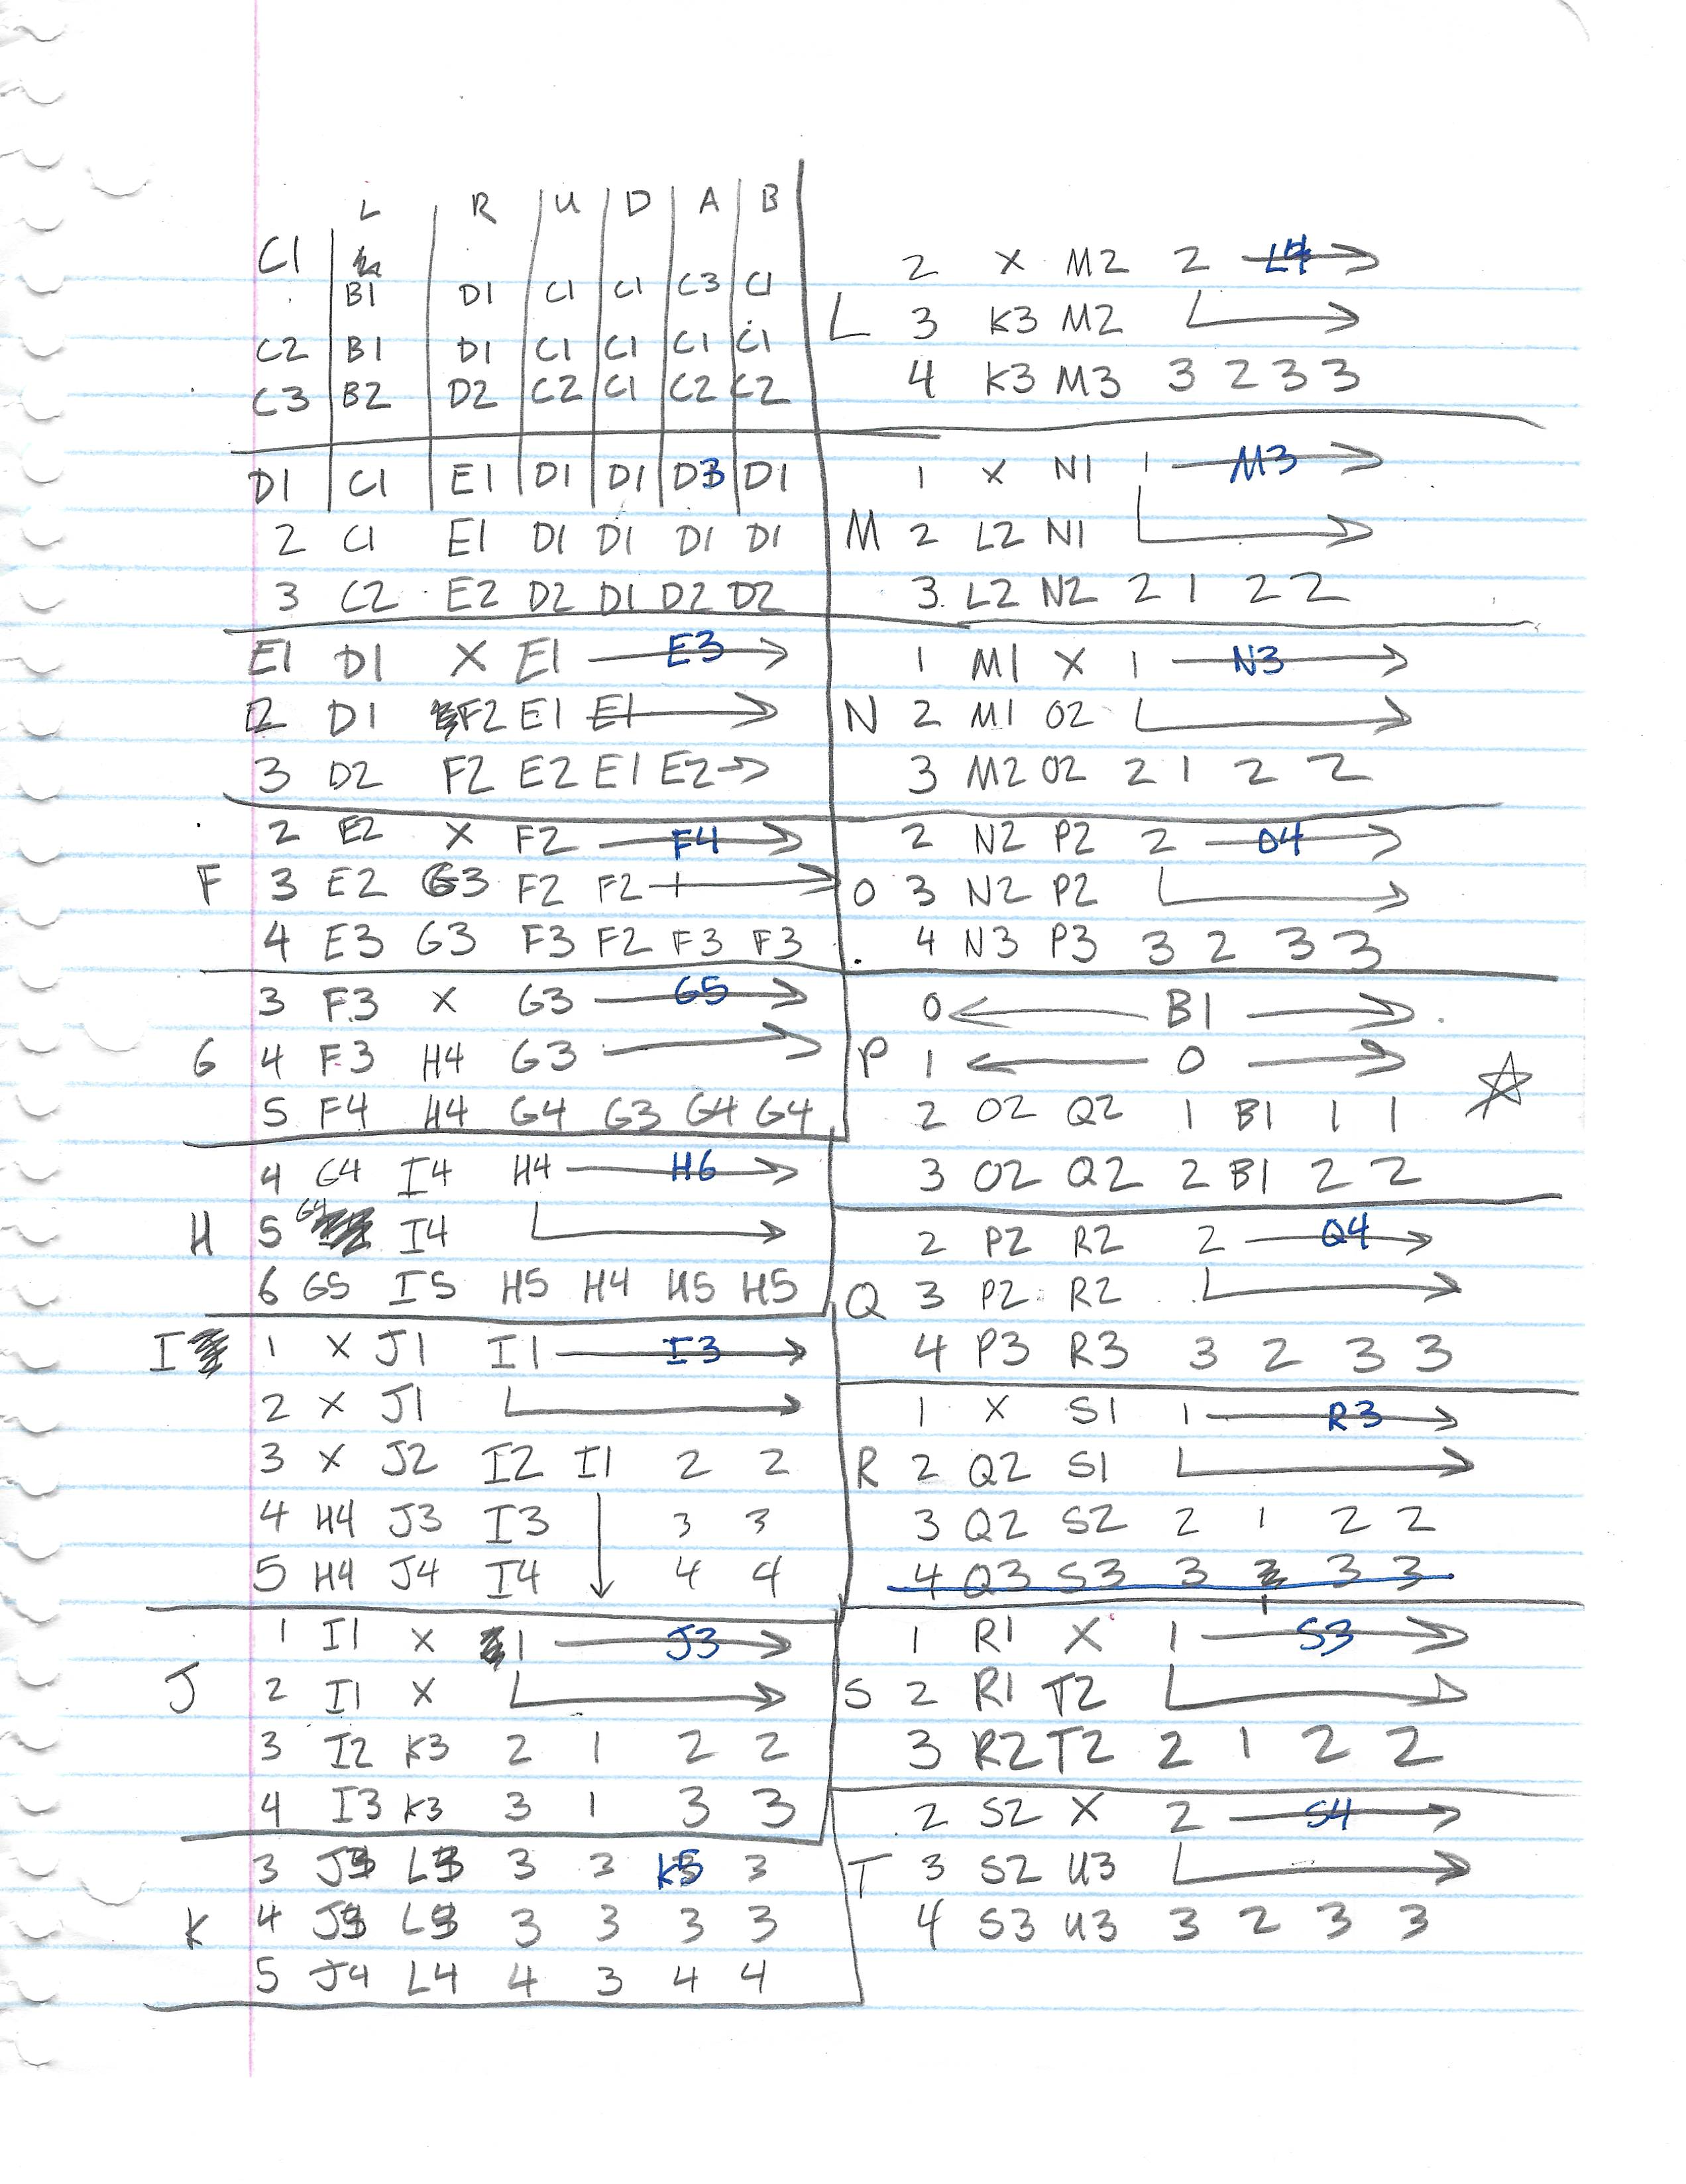 L R U D A B
C1
B1 D1 C1 C1 C3 C1
C2 B1 D1 C1 C1 C1 C1
C3 B2 D2 C2 C1 C2 C2
D1 C1 E1 D1 D1 D3 D1
2 C1 E1 D1 D1 D1 D1
3 C2 E2 D2 D1 D2 D2
E1 D1 X E1 → E3
2 D1 F2 E1 E1 →
3 D2 F2 E2 E1 E2 →
2 E2 X F2 → F4
F 3 E2 G3 F2 F2 →
4 E3 G3 F3 F2 F3 F3
3 F3 X G3 → G5
G 4 F3 H4 G3 →
5 F4 H4 G4 G3 G4 G4
4 G4 I4 H4 → H6
H 5 G4 I4 →
6 G5 I5 H5 H4 H5 H5
I 1 X J1 I1 → I3
2 X J1 →
3 X J2 I2 I1 2 2
4 H4 J3 I3 ↓ 3 3
5 H4 J4 I4 4 4
1 I1 X 1 → J3
J 2 I1 X →
3 I2 K3 2 1 2 2
4 I3 K3 3 1 3 3
3 J3 L3 3 3 K5 3
K 4 J3 L3 3 3 3 3
5 J4 L4 4 3 4 4
2 X M2 2 → L4
L 3 K3 M2 →
4 K3 M3 3 2 3 3
1 X N1 1 → M3
M 2 L2 N1 →
3 L2 N2 2 1 2 2
1 M1 X 1 → N3
N 2 M1 O2 →
3 M2 O2 2 1 2 2
2 N2 P2 2 → O4
O 3 N2 P2 →
4 N3 P3 3 2 3 3
0 ← B1 →
P 1 ← 0 →
2 O2 Q2 1 B1 1 1
3 O2 Q2 2 B1 2 2
2 P2 R2 2 → Q4
Q 3 P2 R2 →
4 P3 R3 3 2 3 3
1 X S1 1 → R3
R 2 Q2 S1 →
3 Q2 S2 2 1 2 2
4 Q3 S3 3 1 3 3
1 R1 X 1 → S3
S 2 R1 T2 →
3 R2 T2 2 1 2 2
2 S2 X 2 → S4
T 3 S2 U3 →
4 S3 U3 3 2 3 3